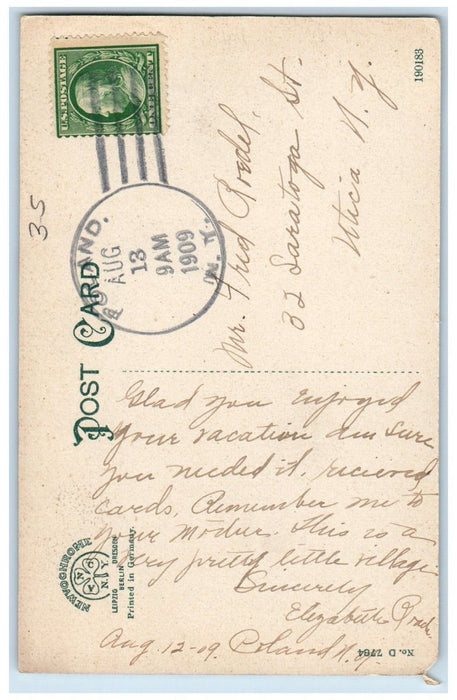 U.S. POSTAGE
POLAND.
AUG
13
9AM
1909
N. Y.
190183
35
POST CARD
Mr. Fred Roedel.
32 Saratoga St.
Utica N. Y.
Glad you enjoyed
your vacation am sure
you needed it. recieved
cards. Remember me to
your Mother. This is a
very pretty little village.
Sincerely
Elizabeth
Aug. 12-09. Poland N.Y.
N. Y.
LEIPZIG DRESDEN
BERLIN
Printed in Germany.
No. D 7764